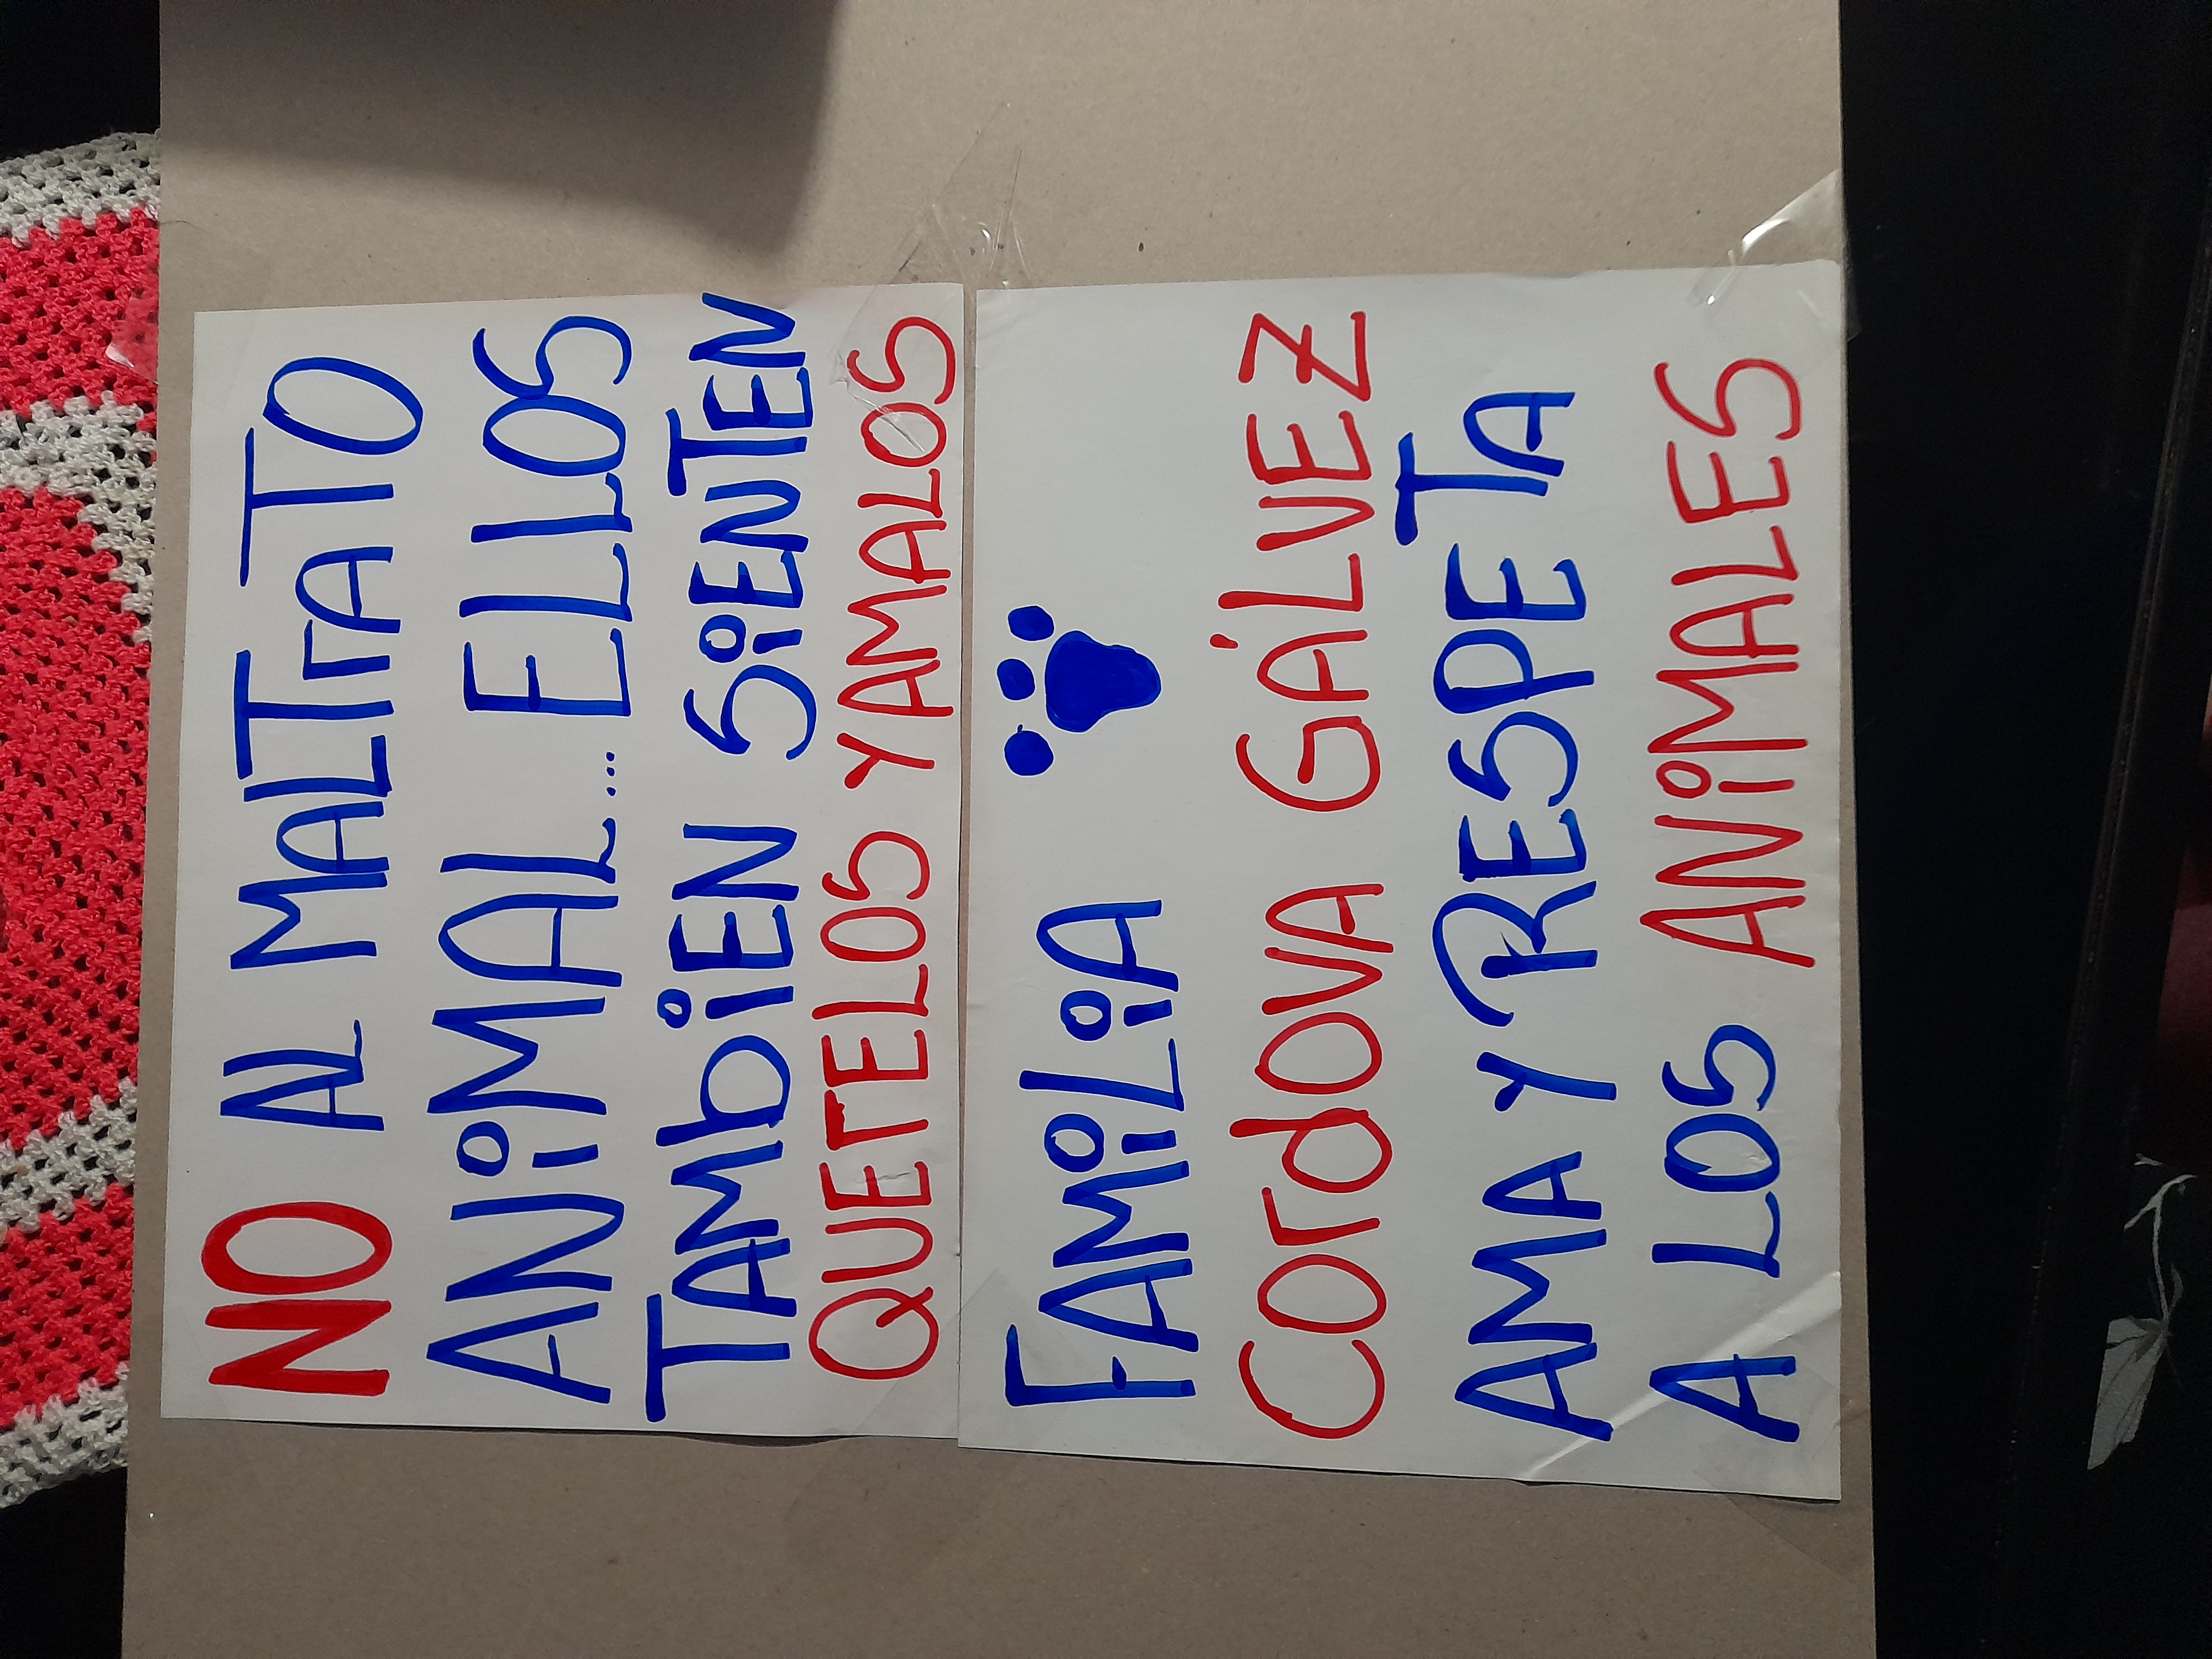 NO AL MALTrATO
ANiMAL... ELLOS
TAMbiEN SiENTEN
QUETELOS Y AMALOS
FAMiLiA
COrdOVA GÁLVEZ
AMA Y RESPETA
A LOS ANiMALES